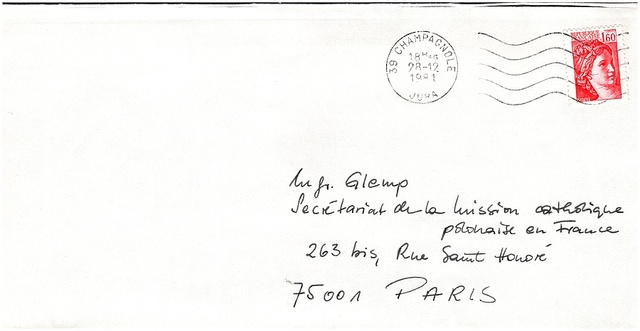 39 CHAMPAGNOLE
18H15
28-12
1981
JURA
1,60
Mgr. Glemp
Secrétariat de la Mission catholique
polonaise en France
263 bis, Rue Saint Honoré
75001 PARIS